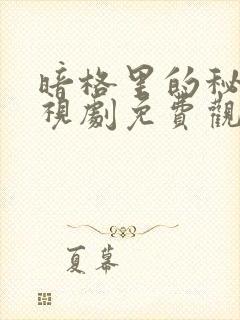 暗格里的秘
視劇免費觀
夏幕